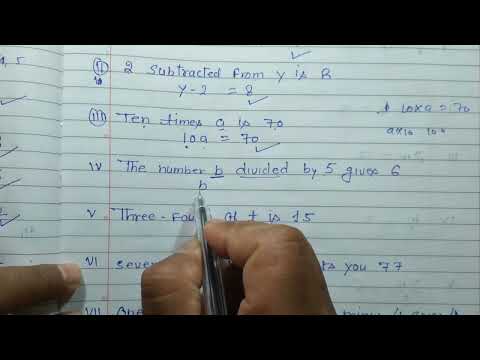 ii) 2 Subtracted from y is 8
y - 2 = 8
iii) Ten times a is 70
10a = 70
10xa = 70
ax10 10a
iv The number b divided by 5 gives 6
b
v Three-Fou t is 15
vi seve ts you 77
vii